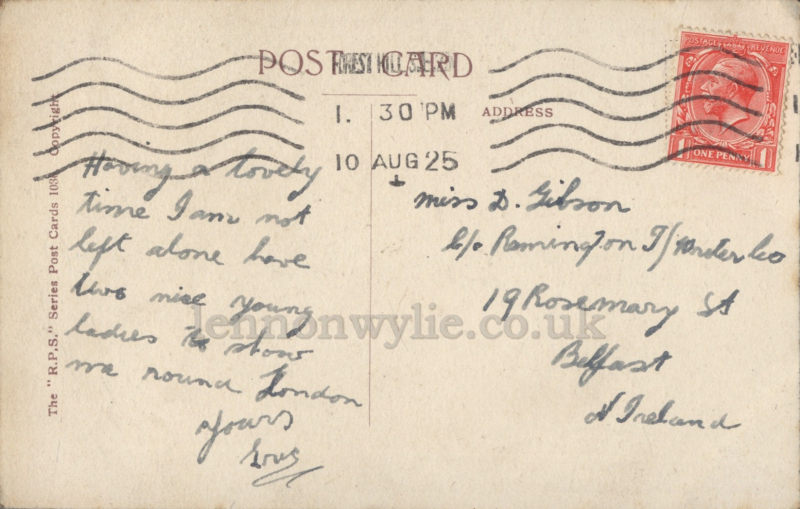 POST CARD
FOREST HILL S.E.
1. 30 PM
10 AUG 25
ADDRESS
POSTAGE REVENUE
1 ONE PENNY 1
The "R.P.S." Series Post Cards Copyright
Having a lovely
time I am not
left alone have
two nice young
ladies to show
me round London
Yours
Miss D. Gibson
C/o Remington T/Writer Co
19 Rosemary St
Belfast
N Ireland
lennonwylie.co.uk